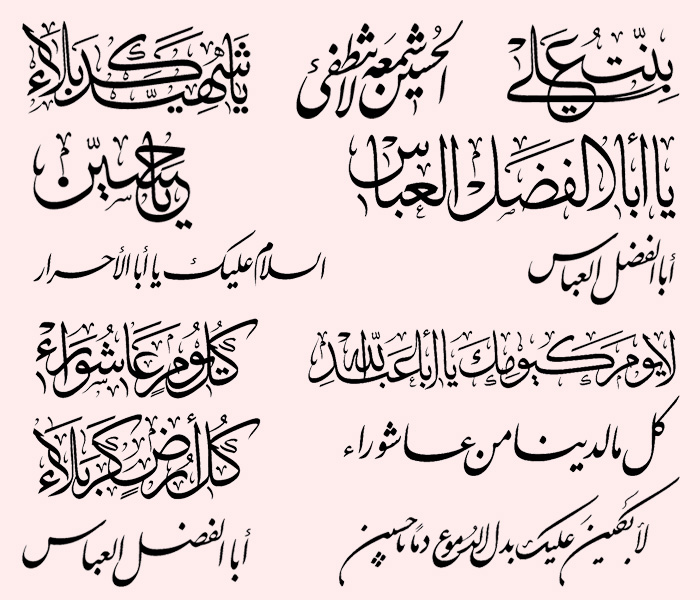 بنت علي
الحسين شمعه لا تنطفئ
يا شهيد كربلاء
يا أبا الفضل العباس
يا حسين
أبا الفضل العباس
السلام عليك يا أبا الأحرار
لا يوم كيومك يا أبا عبدالله
كل يوم عاشوراء
كل مالدينا من عاشوراء
كل أرض كربلاء
لأبكين عليك بدل الدموع دما يا حسين
أبا الفضل العباس